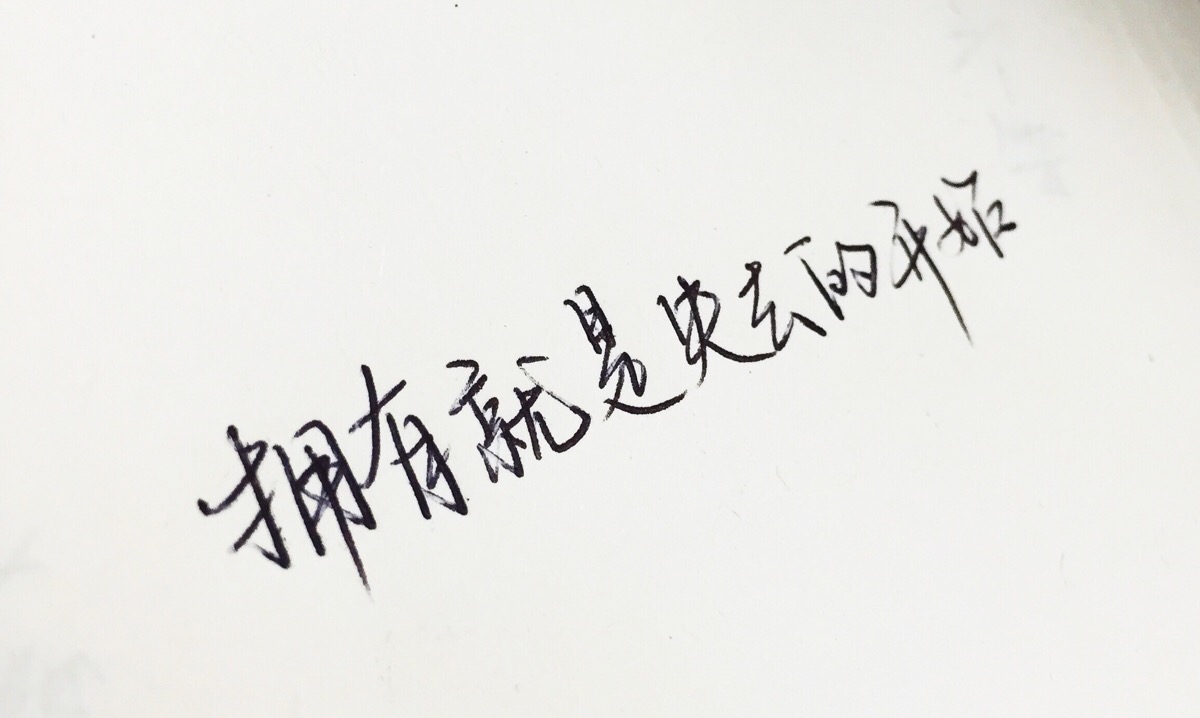 拥有就是失去的开始